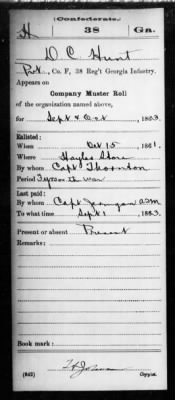 Confederate.
H 38 Ga.
D C Hunt
Pvt., Co. F, 38 Reg't Georgia Infantry.
Appears on
Company Muster Roll
of the organization named above,
for Sept & Oct, 1863.
Enlisted:
When Oct 15, 1861.
Where Hayles Store
By whom Capt Thornton
Period 3 years or the war
Last paid:
By whom Capt Jernigan aqm
To what time Sept 1, 1863.
Present or absent Present
Remarks:
Book mark:
(642) Copyist.